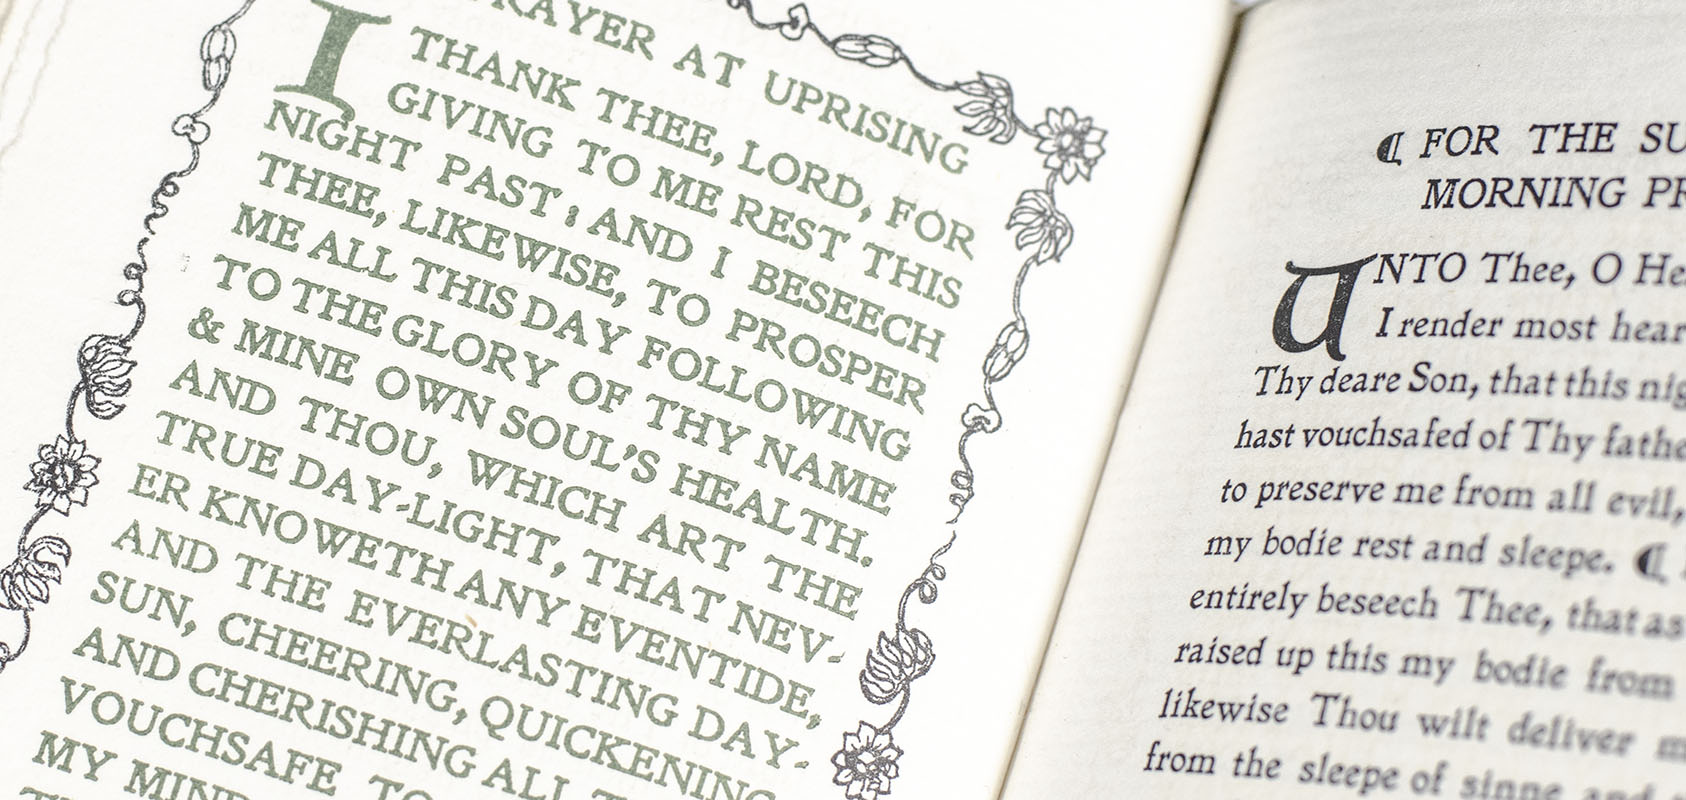 PRAYER AT UPRISING
I THANK THEE, LORD, FOR
GIVING TO ME REST THIS
NIGHT PAST: AND I BESEECH
THEE, LIKEWISE, TO PROSPER
ME ALL THIS DAY FOLLOWING
TO THE GLORY OF THY NAME
& MINE OWN SOUL'S HEALTH.
AND THOU, WHICH ART THE
TRUE DAY-LIGHT, THAT NEV-
ER KNOWETH ANY EVENTIDE,
AND THE EVERLASTING DAY-
SUN, CHEERING, QUICKENING
AND CHERISHING ALL
VOUCHSAFE TO
MY MIND
¶ FOR THE SU
MORNING PR
UNTO Thee, O He
I render most hear
Thy deare Son, that this nig
hast vouchsafed of Thy fathe
to preserve me from all evil,
my bodie rest and sleepe. ¶
entirely beseech Thee, that as
raised up this my bodie from
likewise Thou wilt deliver m
from the sleepe of sinne and